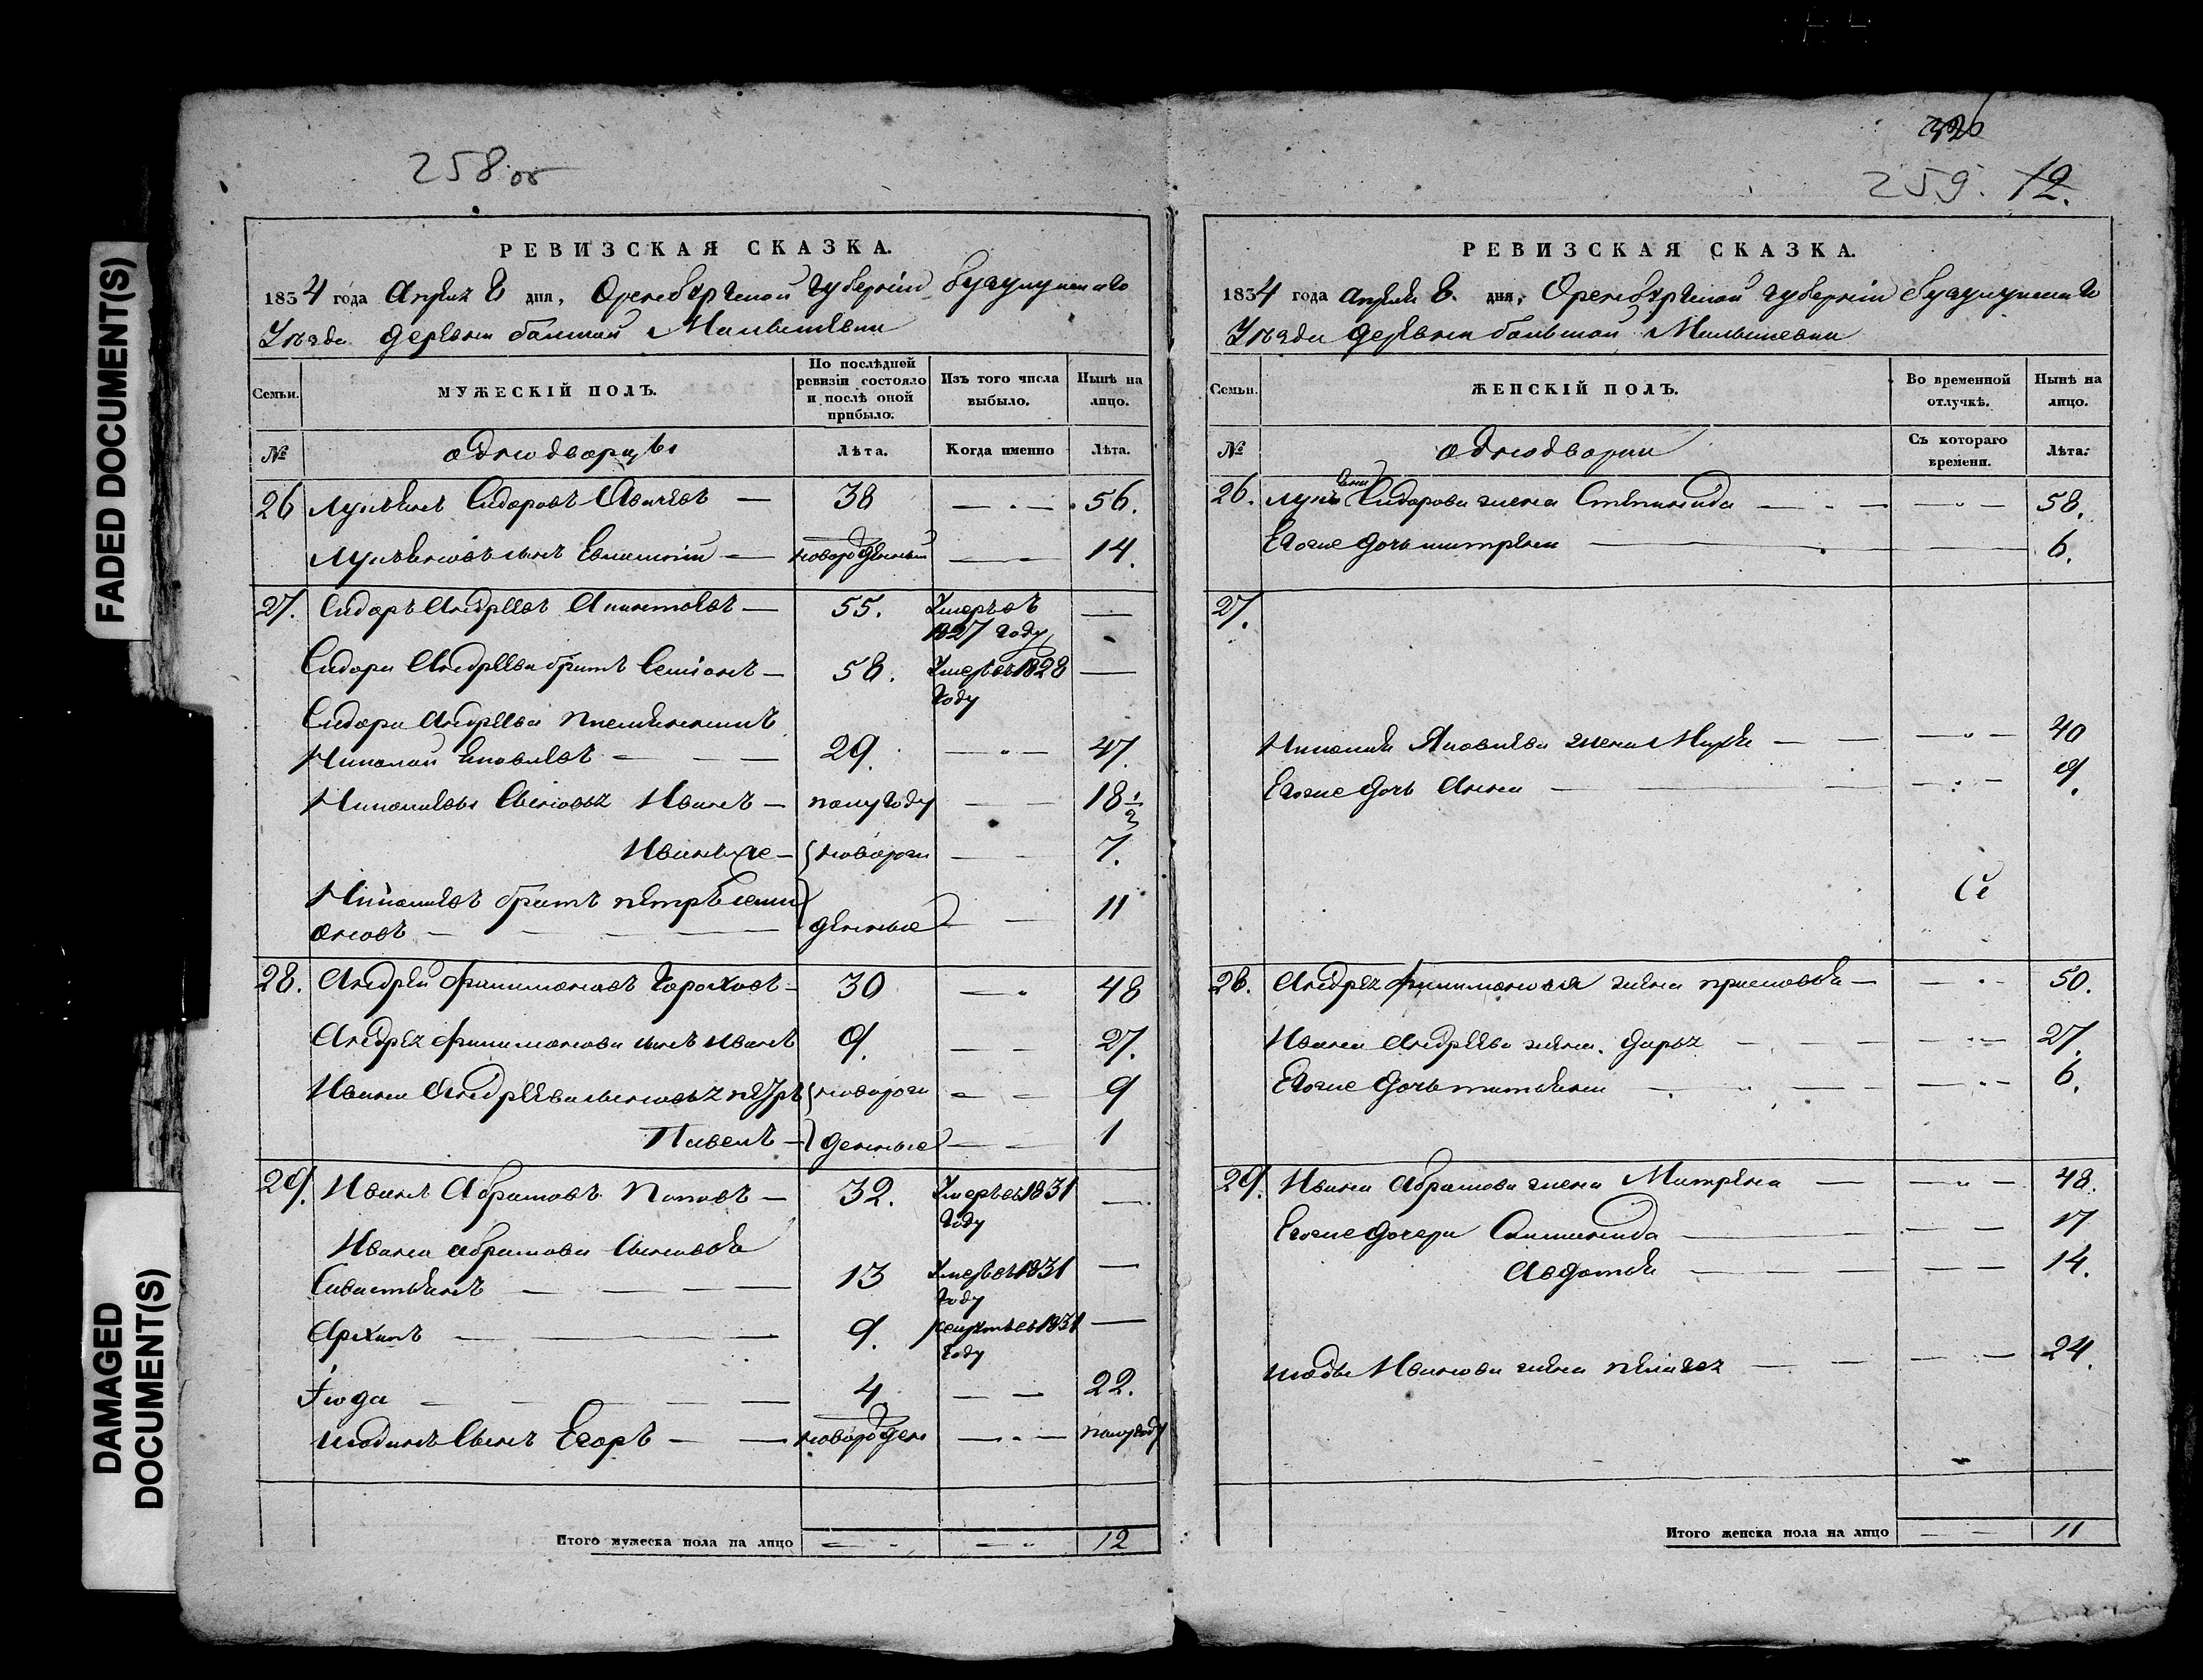 FADED DOCUMENT(S)
DAMAGED
DOCUMENT(S)
258 об
РЕВИЗСКАЯ СКАЗКА.
1834 года Апреля 8 дня, Оренбургской губернии Бугурусланского
Уезда деревни большой
МУЖЕСКІЙ ПОЛЪ.
Семьи.
По послѣдней
ревизіи состояло
и послѣ оной
прибыло.
Изъ того числа
выбыло.
Нынѣ на
лицо.
№
однодворцы
Лѣта.
Когда именно
Лѣта.
26 Сидоровъ — 38 — 56.
сынъ — новорожденный — 14.
27. Сидоръ Андреевъ — 55. Умеръ въ —
1827 году
Сидора Андреева братъ Семіонъ — 58. Умеръ въ 1828 —
году
Сидора Андреева племянникъ
Николай Яковлевъ — 29. — 47.
Николаевы сыновья Иванъ — полугоду — 18 1/2
Иванъ же — новорож — 7.
Николаевъ братъ петръ семи
оновъ — денные — 11
28. Андрей филимоновъ Гороховъ — 30 — 48
Андрея филимонова сынъ иванъ 9. — 27.
Ивана Андреева сыновья петръ новорож — 9
Павелъ — денные — 1
29. Иванъ Абрамовъ Поповъ — 32. Умеръ въ 1831 —
году
Ивана абрамова сыновья
Савастьянъ — 13 Умеръ въ 1831 —
году
Архипъ — 9. рекрутъ въ 1831 —
году
4 — 22.
сынъ Егоръ — новорожден — полугоду
Итого мужеска пола на лицо — — 12
326
259. 12.
РЕВИЗСКАЯ СКАЗКА.
1834 года апреля 8. дня, Оренбургской губернии бугурусланского
Уезда деревни большой
Семьи.
ЖЕНСКІЙ ПОЛЪ.
Во временной
отлучкѣ.
Нынѣ на
лицо.
№
однодворки
Съ котораго
времени.
Лѣта.
26. Сидорова жена Степанида — 58.
Егоже дочь матрена — 6.
27.
Николая Яковлева жена Марья — 40
Егоже дочь Анна — 9.
28. Андрея филимонова жена прасковья — 50.
Ивана андреева жена. дарья — 27.
Егоже дочь татьяна — 6.
29. Ивана абрамова жена Матрена — 48.
Егоже дочери Саломанида — 17
Авдотья — 14.
Иванова жена пелагея — 24.
Итого женска пола на лицо — 11